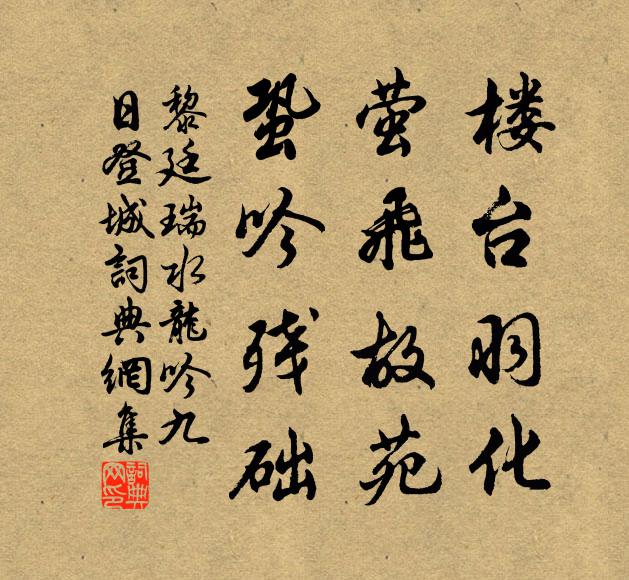 楼台羽化
萤飞故苑
蛩吟残础
黎廷瑞水龍吟九
日登城詞典網集
詞典网印